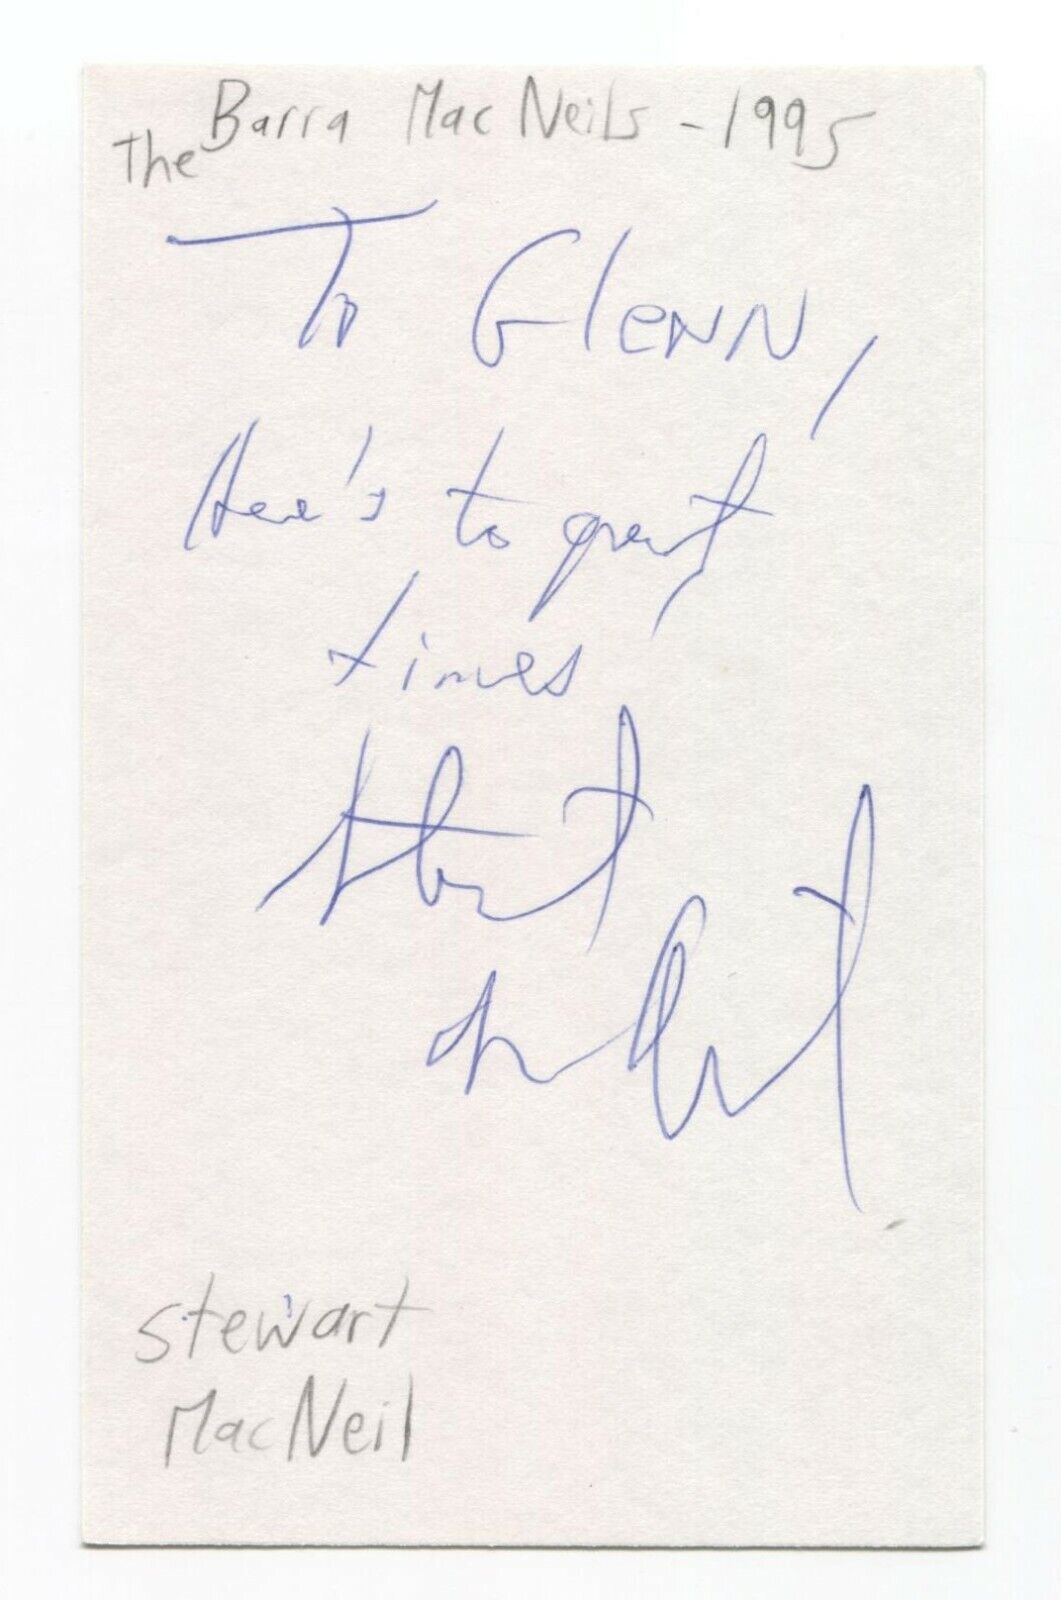 The Barra MacNeils - 1995
To Glenn,
Here's to great
times
Stewart
MacNeil